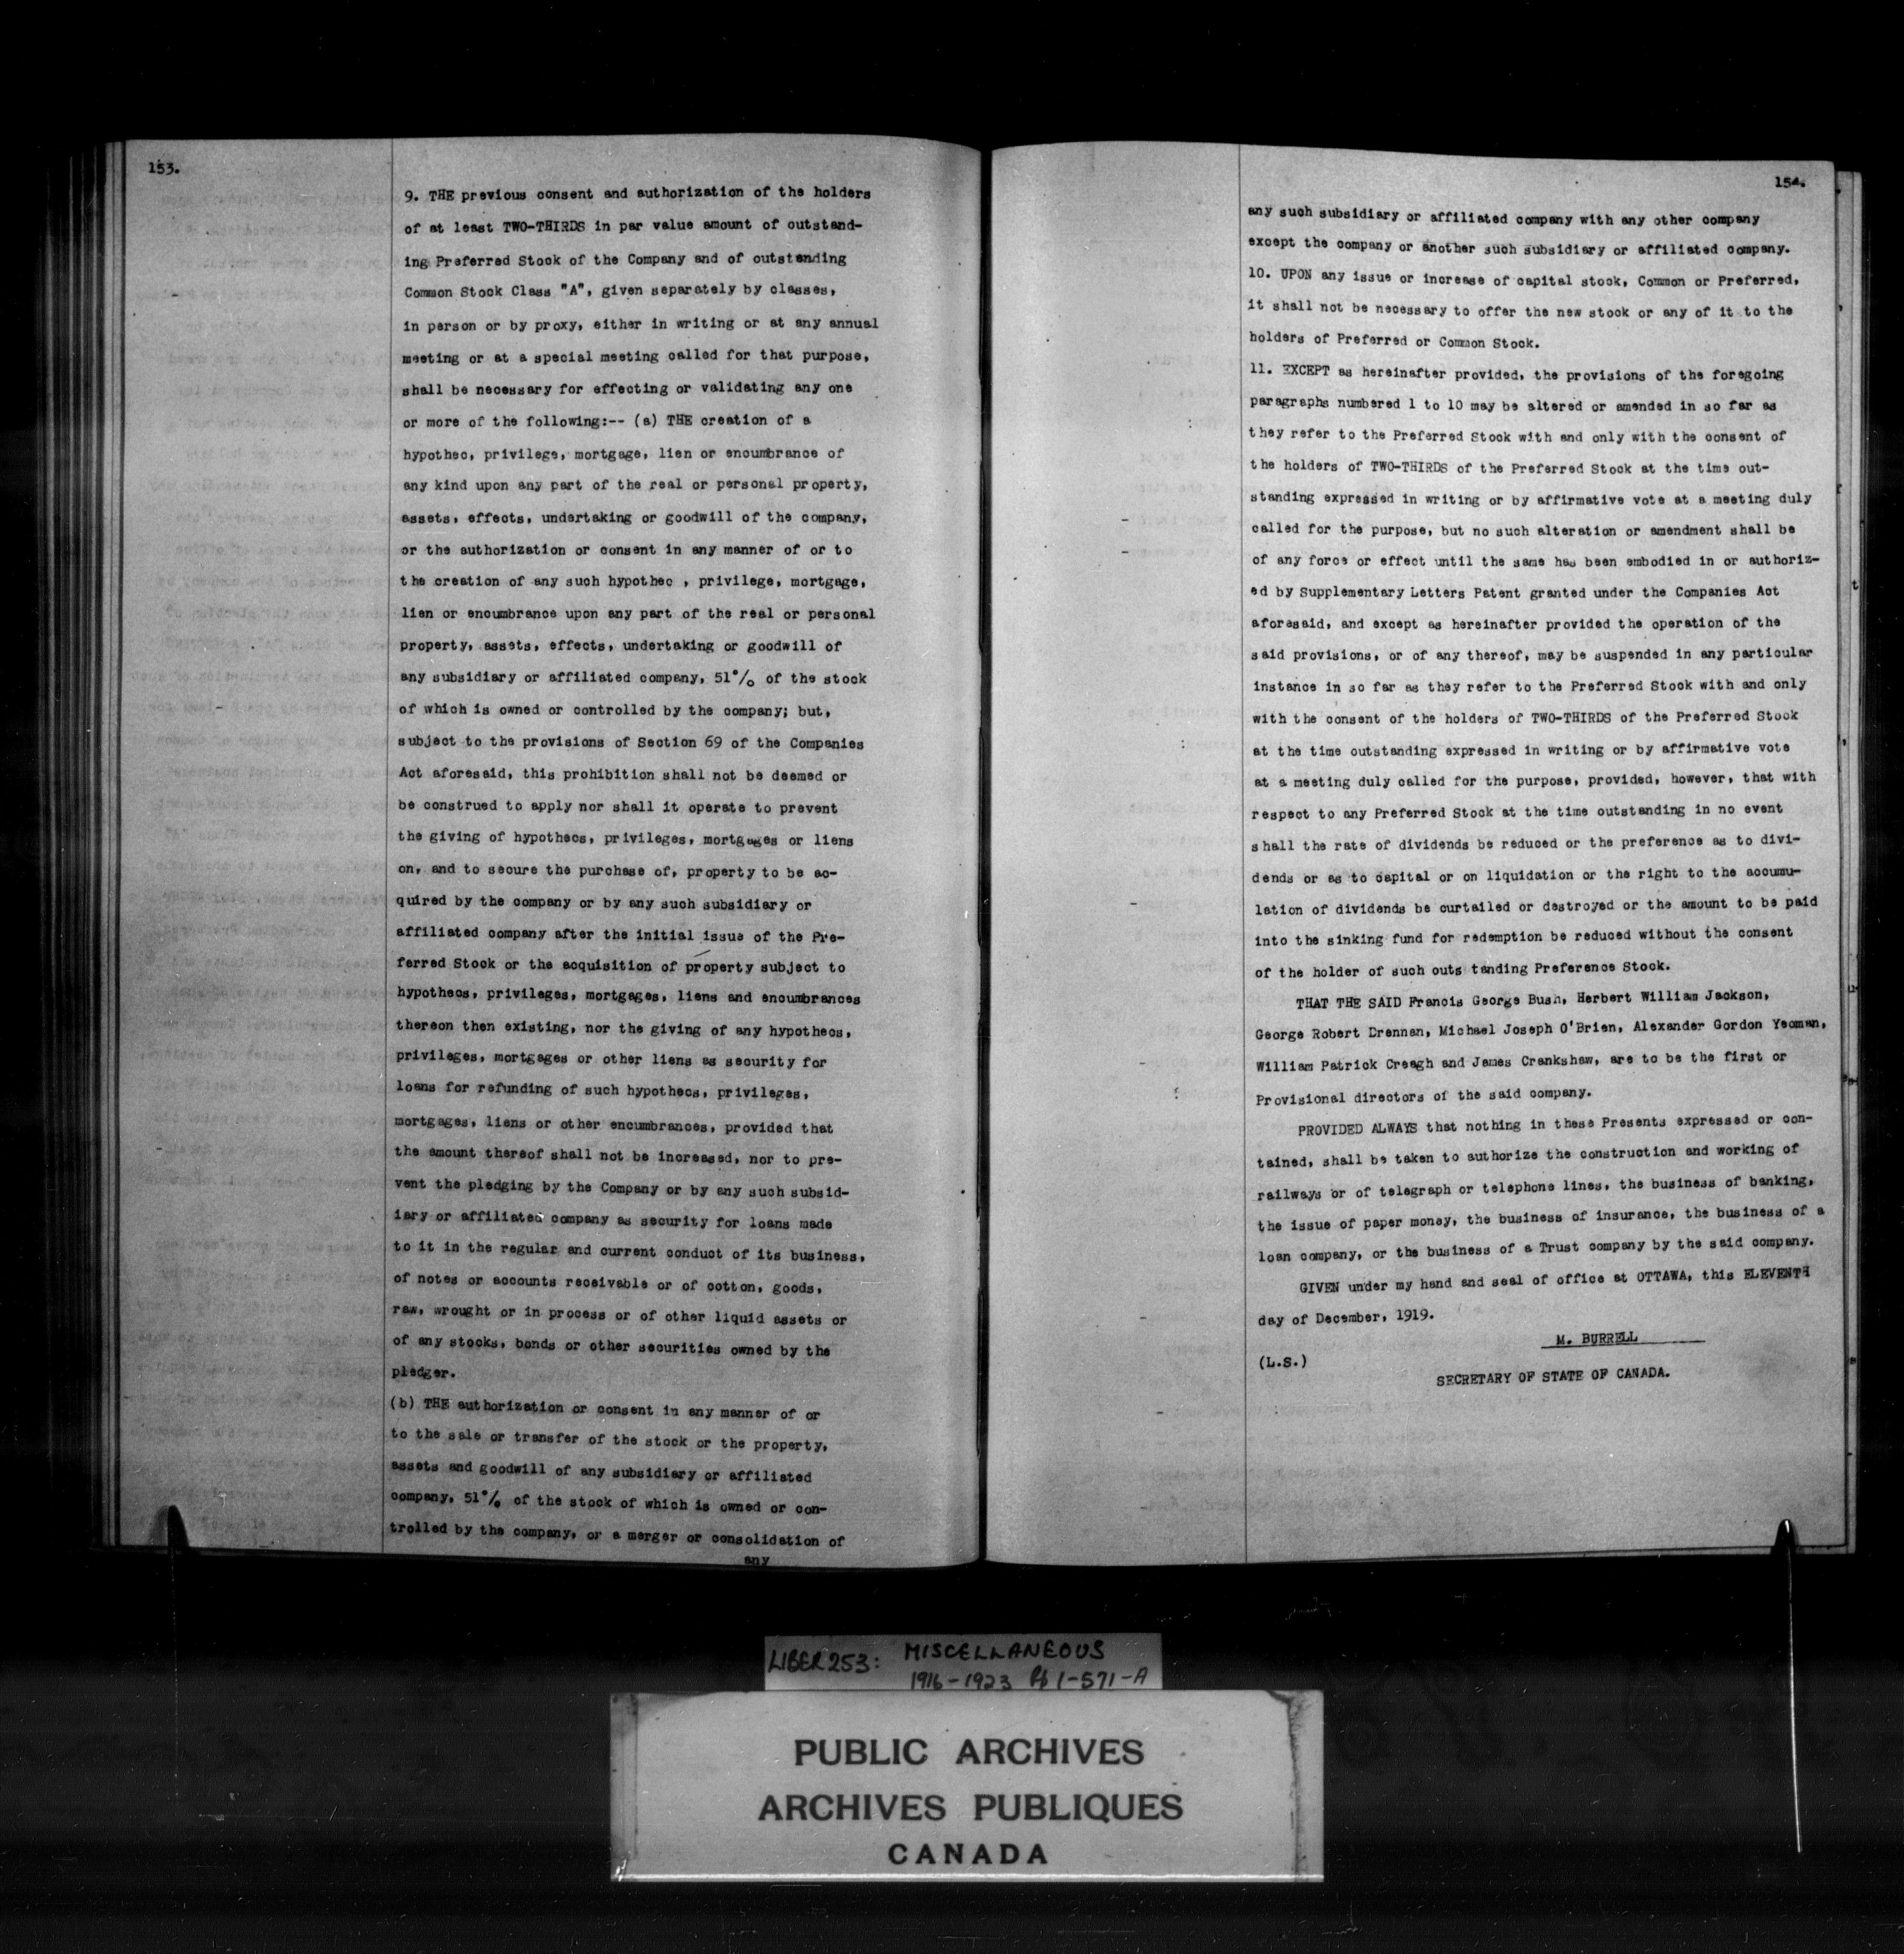 153.
9. THE previous consent and authorization of the holders
of at least TWO-THIRDS in par value amount of outstand-
ing Preferred Stock of the Company and of outstanding
Common Stock Class "A", given separately by classes,
in person or by proxy, either in writing or at any annual
meeting or at a special meeting called for that purpose,
shall be necessary for effecting or validating any one
or more of the following:-- (a) THE creation of a
hypothec, privilege, mortgage, lien or encumbrance of
any kind upon any part of the real or personal property,
assets, effects, undertaking or goodwill of the company,
or the authorization or consent in any manner of or to
the creation of any such hypothec , privilege, mortgage,
lien or encumbrance upon any part of the real or personal
property, assets, effects, undertaking or goodwill of
any subsidiary or affiliated company, 51% of the stock
of which is owned or controlled by the company; but,
subject to the provisions of Section 69 of the Companies
Act aforesaid, this prohibition shall not be deemed or
be construed to apply nor shall it operate to prevent
the giving of hypothecs, privileges, mortgages or liens
on, and to secure the purchase of, property to be ac-
quired by the company or by any such subsidiary or
affiliated company after the initial issue of the Pre-
ferred Stock or the acquisition of property subject to
hypothecs, privileges, mortgages, liens and encumbrances
thereon then existing, nor the giving of any hypothecs,
privileges, mortgages or other liens as security for
loans for refunding of such hypothecs, privileges,
mortgages, liens or other encumbrances, provided that
the amount thereof shall not be increased, nor to pre-
vent the pledging by the Company or by any such subsid-
iary or affiliated company as security for loans made
to it in the regular and current conduct of its business,
of notes or accounts receivable or of cotton, goods,
raw, wrought or in process or of other liquid assets or
of any stocks, bonds or other securities owned by the
pledger.
(b) THE authorization or consent in any manner of or
to the sale or transfer of the stock or the property,
assets and goodwill of any subsidiary or affiliated
company, 51% of the stock of which is owned or con-
trolled by the company, or a merger or consolidation of
any
154.
any such subsidiary or affiliated company with any other company
except the company or another such subsidiary or affiliated company.
10. UPON any issue or increase of capital stock, Common or Preferred,
it shall not be necessary to offer the new stock or any of it to the
holders of Preferred or Common Stock.
11. EXCEPT as hereinafter provided, the provisions of the foregoing
paragraphs numbered 1 to 10 may be altered or amended in so far as
they refer to the Preferred Stock with and only with the consent of
the holders of TWO-THIRDS of the Preferred Stock at the time out-
standing expressed in writing or by affirmative vote at a meeting duly
called for the purpose, but no such alteration or amendment shall be
of any force or effect until the same has been embodied in or authoriz-
ed by Supplementary Letters Patent granted under the Companies Act
aforesaid, and except as hereinafter provided the operation of the
said provisions, or of any thereof, may be suspended in any particular
instance in so far as they refer to the Preferred Stock with and only
with the consent of the holders of TWO-THIRDS of the Preferred Stock
at the time outstanding expressed in writing or by affirmative vote
at a meeting duly called for the purpose, provided, however, that with
respect to any Preferred Stock at the time outstanding in no event
shall the rate of dividends be reduced or the preference as to divi-
dends or as to capital or on liquidation or the right to the accumu-
lation of dividends be curtailed or destroyed or the amount to be paid
into the sinking fund for redemption be reduced without the consent
of the holder of such outs tanding Preference Stock.
THAT THE SAID Francis George Bush, Herbert William Jackson,
George Robert Drennan, Michael Joseph O'Brien, Alexander Gordon Yeoman,
William Patrick Creagh and James Crankshaw, are to be the first or
Provisional directors of the said company.
PROVIDED ALWAYS that nothing in these Presents expressed or con-
tained, shall be taken to authorize the construction and working of
railways or of telegraph or telephone lines, the business of banking,
the issue of paper money, the business of insurance, the business of a
loan company, or the business of a Trust company by the said company.
GIVEN under my hand and seal of office at OTTAWA, this ELEVENTH
day of December, 1919.
M. BURRELL
(L.S.)
SECRETARY OF STATE OF CANADA.
LIBER 253: MISCELLANEOUS
1916-1923 Pp 1-571-A
PUBLIC ARCHIVES
ARCHIVES PUBLIQUES
CANADA